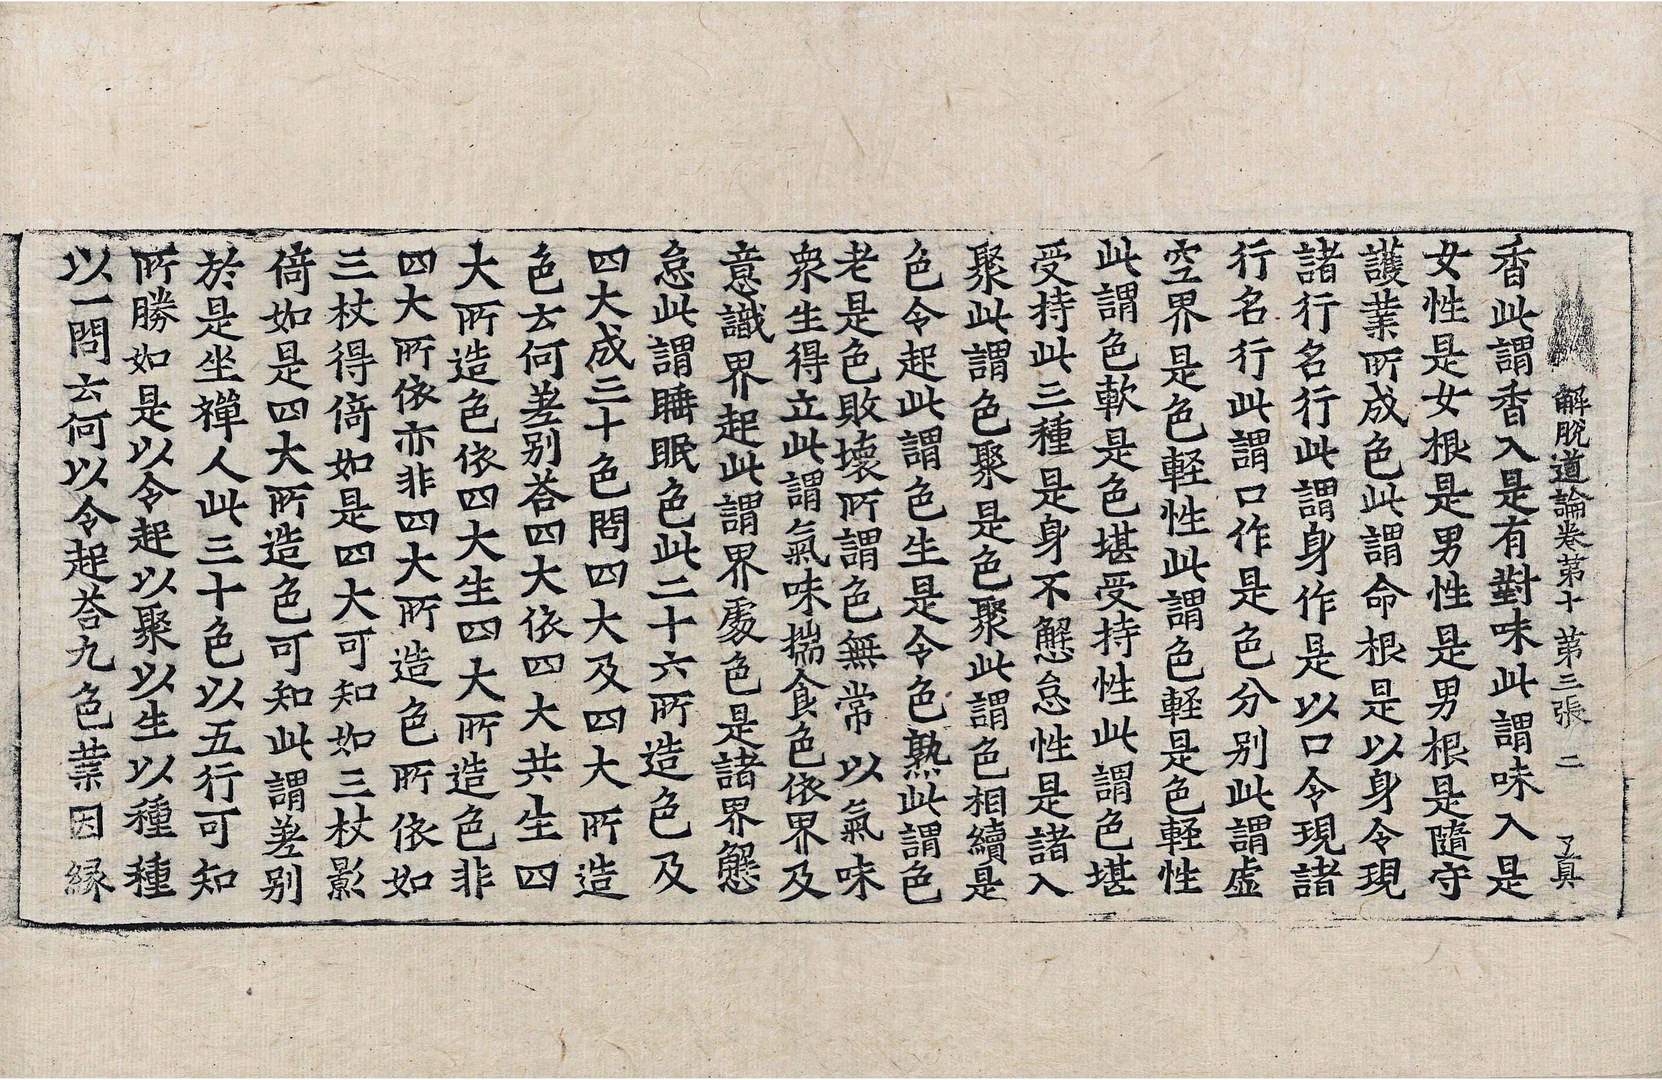 解脫道論卷第十 第三張 二 了真
香此謂香入是有對味此謂味入是
女性是女根是男性是男根是隨守
護業所成色此謂命根是以身令現
諸行名行此謂身作是以口令現諸
行名行此謂口作是色分別此謂虛
空界是色軽性此謂色軽是色軽性
此謂色軟是色堪受持性此謂色堪
受持此三種是身不懈怠性是諸入
聚此謂色聚是色聚此謂色相續是
色令起此謂色生是令色熟此謂色
老是色敗壞所謂色無常以氣味
衆生得立此謂氣味揣食色依界及
意識界起此謂界處色是諸界懈
怠此謂睡眠色此二十六所造色及
四大成三十色問四大及四大所造
色云何差别荅四大依四大共生四
大所造色依四大生四大所造色非
四大所依亦非四大所造色所依如
三杖得倚如是四大可知如三杖影
倚如是四大所造色可知此謂差别
於是坐禪人此三十色以五行可知
所勝如是以令起以聚以生以種種
以一問云何以令起荅九色業因縁